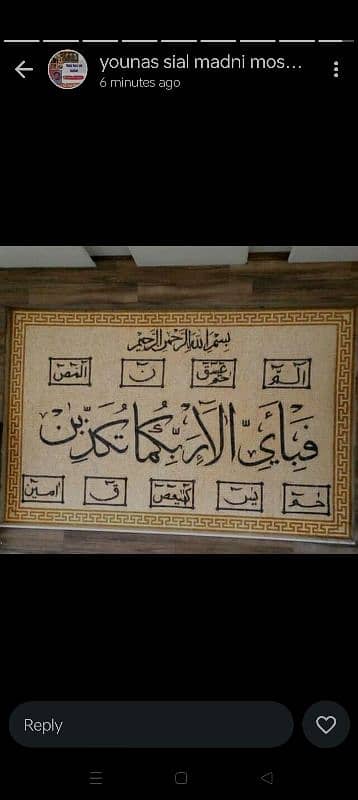 younas sial madni mos...
6 minutes ago
بسم الله الرحمن الرحيم
الٓمّٓ حٰمٓ عٓسٓقٓ نٓ الٓمّٓصٓ
فَبِأَيِّ آلَاءِ رَبِّكُمَا تُكَذِّبٰنِ
حٰمٓ يٰسٓ كٓهٰيٰعٓصٓ قٓ امين
Reply